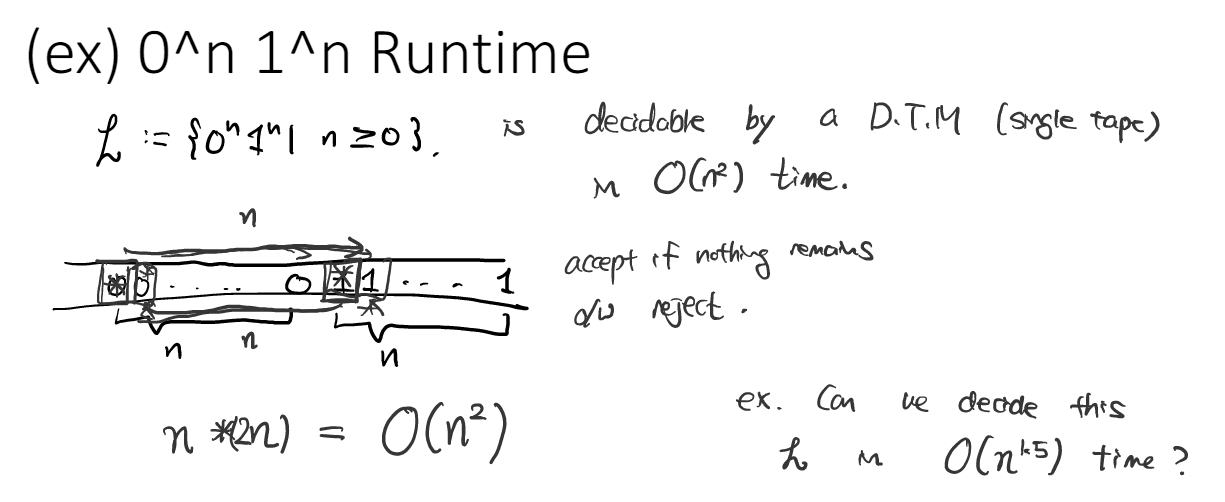 (ex) 0^n 1^n Runtime
L := {0ⁿ1ⁿ | n ≥ 0}. is decidable by a D.T.M (single tape)
in O(n²) time.
n
* 0 0 . . . . 0 * 1 1 . . . 1
accept if nothing remains
o/w reject.
n n n
n *(2n) = O(n²)
ex. Can we decide this
L in O(n^1.5) time?